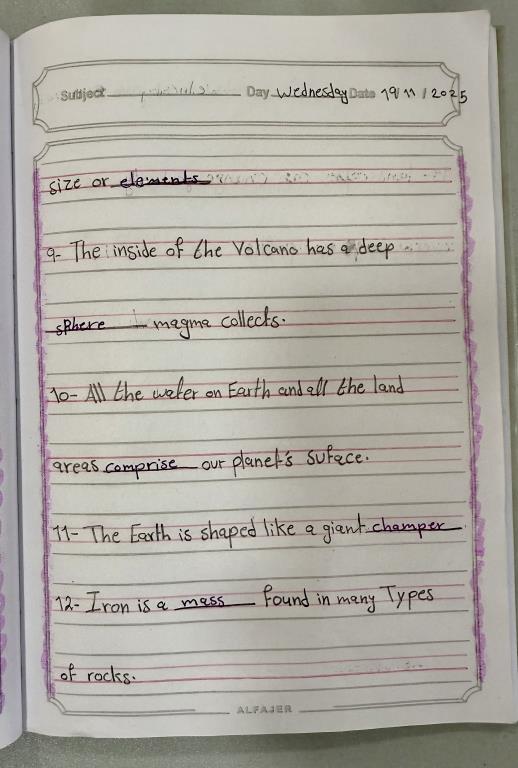 Subject Day Wednesday Date 19/11/2025
size or elements
9- The inside of the Volcano has a deep
sphere magma collects.
10- All the water on Earth and all the land
areas comprise our planet's suface.
11- The Earth is shaped like a giant champer
12- Iron is a mass found in many Types
of rocks.
ALFAJER